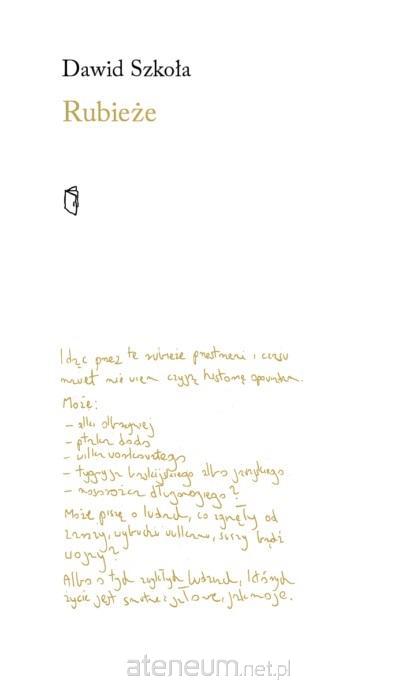 Dawid Szkoła
Rubieże
Idąc przez te rubieże przestrzeni i czasu
nawet nie wiem czyją historię opowiadam.
Może:
- alki olbrzymiej
- ptaka dodo
- wilka workowatego
- tygrysa kaspijskiego albo jawajskiego
- nosorożca długorogiego?
Może piszę o ludziach, co zginęły od
zarazy, wybuchu wulkanu, suszy bądź
wojny?
Albo o tych zwykłych ludziach, których
życie jest smutne i jałowe, jak moje.
ateneum.net.pl